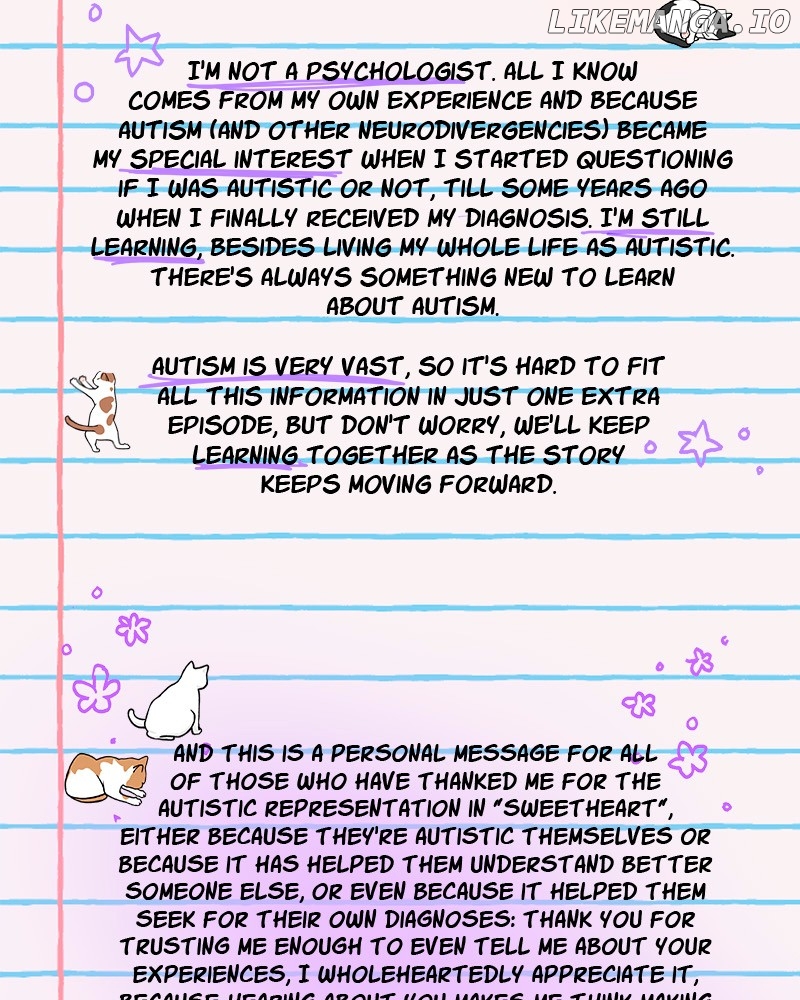 LIKEMANGA.IO
I'M NOT A PSYCHOLOGIST. ALL I KNOW
COMES FROM MY OWN EXPERIENCE AND BECAUSE
AUTISM (AND OTHER NEURODIVERGENCIES) BECAME
MY SPECIAL INTEREST WHEN I STARTED QUESTIONING
IF I WAS AUTISTIC OR NOT, TILL SOME YEARS AGO
WHEN I FINALLY RECEIVED MY DIAGNOSIS. I'M STILL
LEARNING, BESIDES LIVING MY WHOLE LIFE AS AUTISTIC.
THERE'S ALWAYS SOMETHING NEW TO LEARN
ABOUT AUTISM.
AUTISM IS VERY VAST, SO IT'S HARD TO FIT
ALL THIS INFORMATION IN JUST ONE EXTRA
EPISODE, BUT DON'T WORRY, WE'LL KEEP
LEARNING TOGETHER AS THE STORY
KEEPS MOVING FORWARD.
AND THIS IS A PERSONAL MESSAGE FOR ALL
OF THOSE WHO HAVE THANKED ME FOR THE
AUTISTIC REPRESENTATION IN "SWEETHEART",
EITHER BECAUSE THEY'RE AUTISTIC THEMSELVES OR
BECAUSE IT HAS HELPED THEM UNDERSTAND BETTER
SOMEONE ELSE, OR EVEN BECAUSE IT HELPED THEM
SEEK FOR THEIR OWN DIAGNOSES: THANK YOU FOR
TRUSTING ME ENOUGH TO EVEN TELL ME ABOUT YOUR
EXPERIENCES, I WHOLEHEARTEDLY APPRECIATE IT,
BECAUSE HEARING ABOUT YOU MAKES ME THINK MAKING